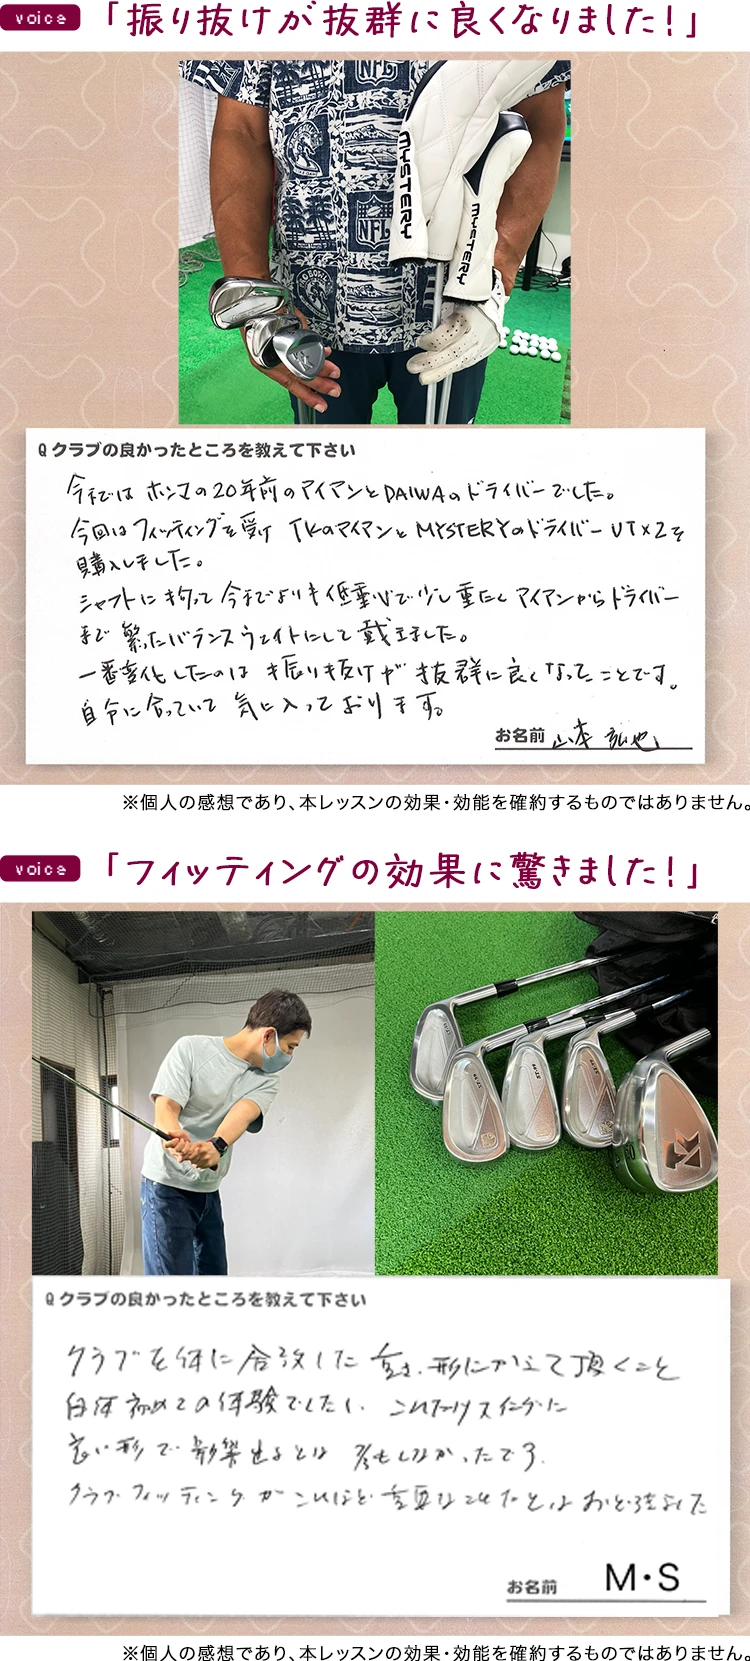 voice 「振り抜けが抜群に良くなりました！」
MYSTERY
MYSTERY
NFL
NFL
Q クラブの良かったところを教えて下さい
今まではホンマの20年前のアイアンとDAIWAのドライバーでした。
今回はフィッティングを受け TKのアイアンとMYSTERYのドライバー UT×2を
購入しました。
シャフトに拘って今までよりも低重心で少し重たくアイアンからドライバー
まで繋ったバランスウェイトにして戴きました。
一番変化したのは振り抜けが抜群に良くなってことです。
自分に合っていて気に入っております。
お名前 山本
※個人の感想であり、本レッスンの効果・効能を確約するものではありません。
voice 「フィッティングの効果に驚きました！」
Q クラブの良かったところを教えて下さい
クラブを体に合致した重さ、形にかえて頂くこと
自体初めての体験でしたし、これだけスイングに
良い形で影響出るとは思もしなかったです。
クラブフィッティングがこれほど重要なことだとはおどろきました
お名前 M・S
※個人の感想であり、本レッスンの効果・効能を確約するものではありません。